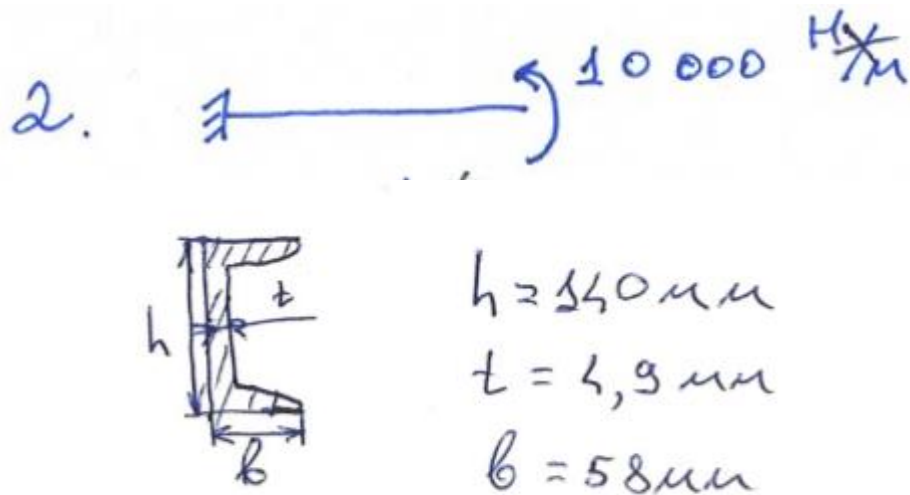 2. 10 000 Н/м
t
h
b
h = 140 мм
t = 4,9 мм
b = 58 мм